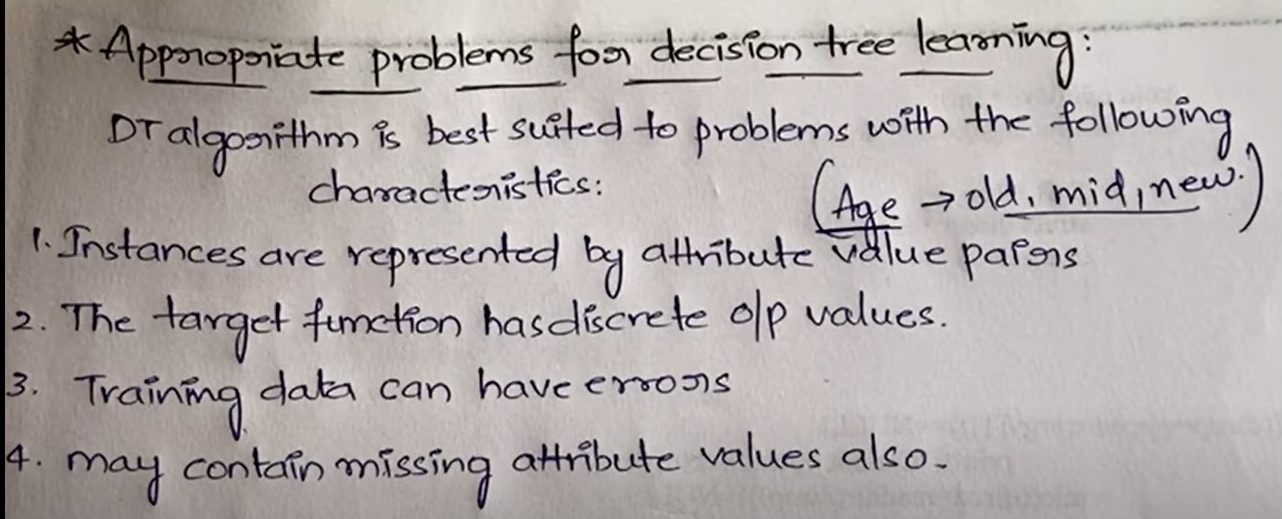 * Appropriate problems for decision tree learning:
DT algorithm is best suited to problems with the following
characteristics:
(Age → old, mid, new.)
1. Instances are represented by attribute value pairs
2. The target function has discrete o/p values.
3. Training data can have errors
4. may contain missing attribute values also.